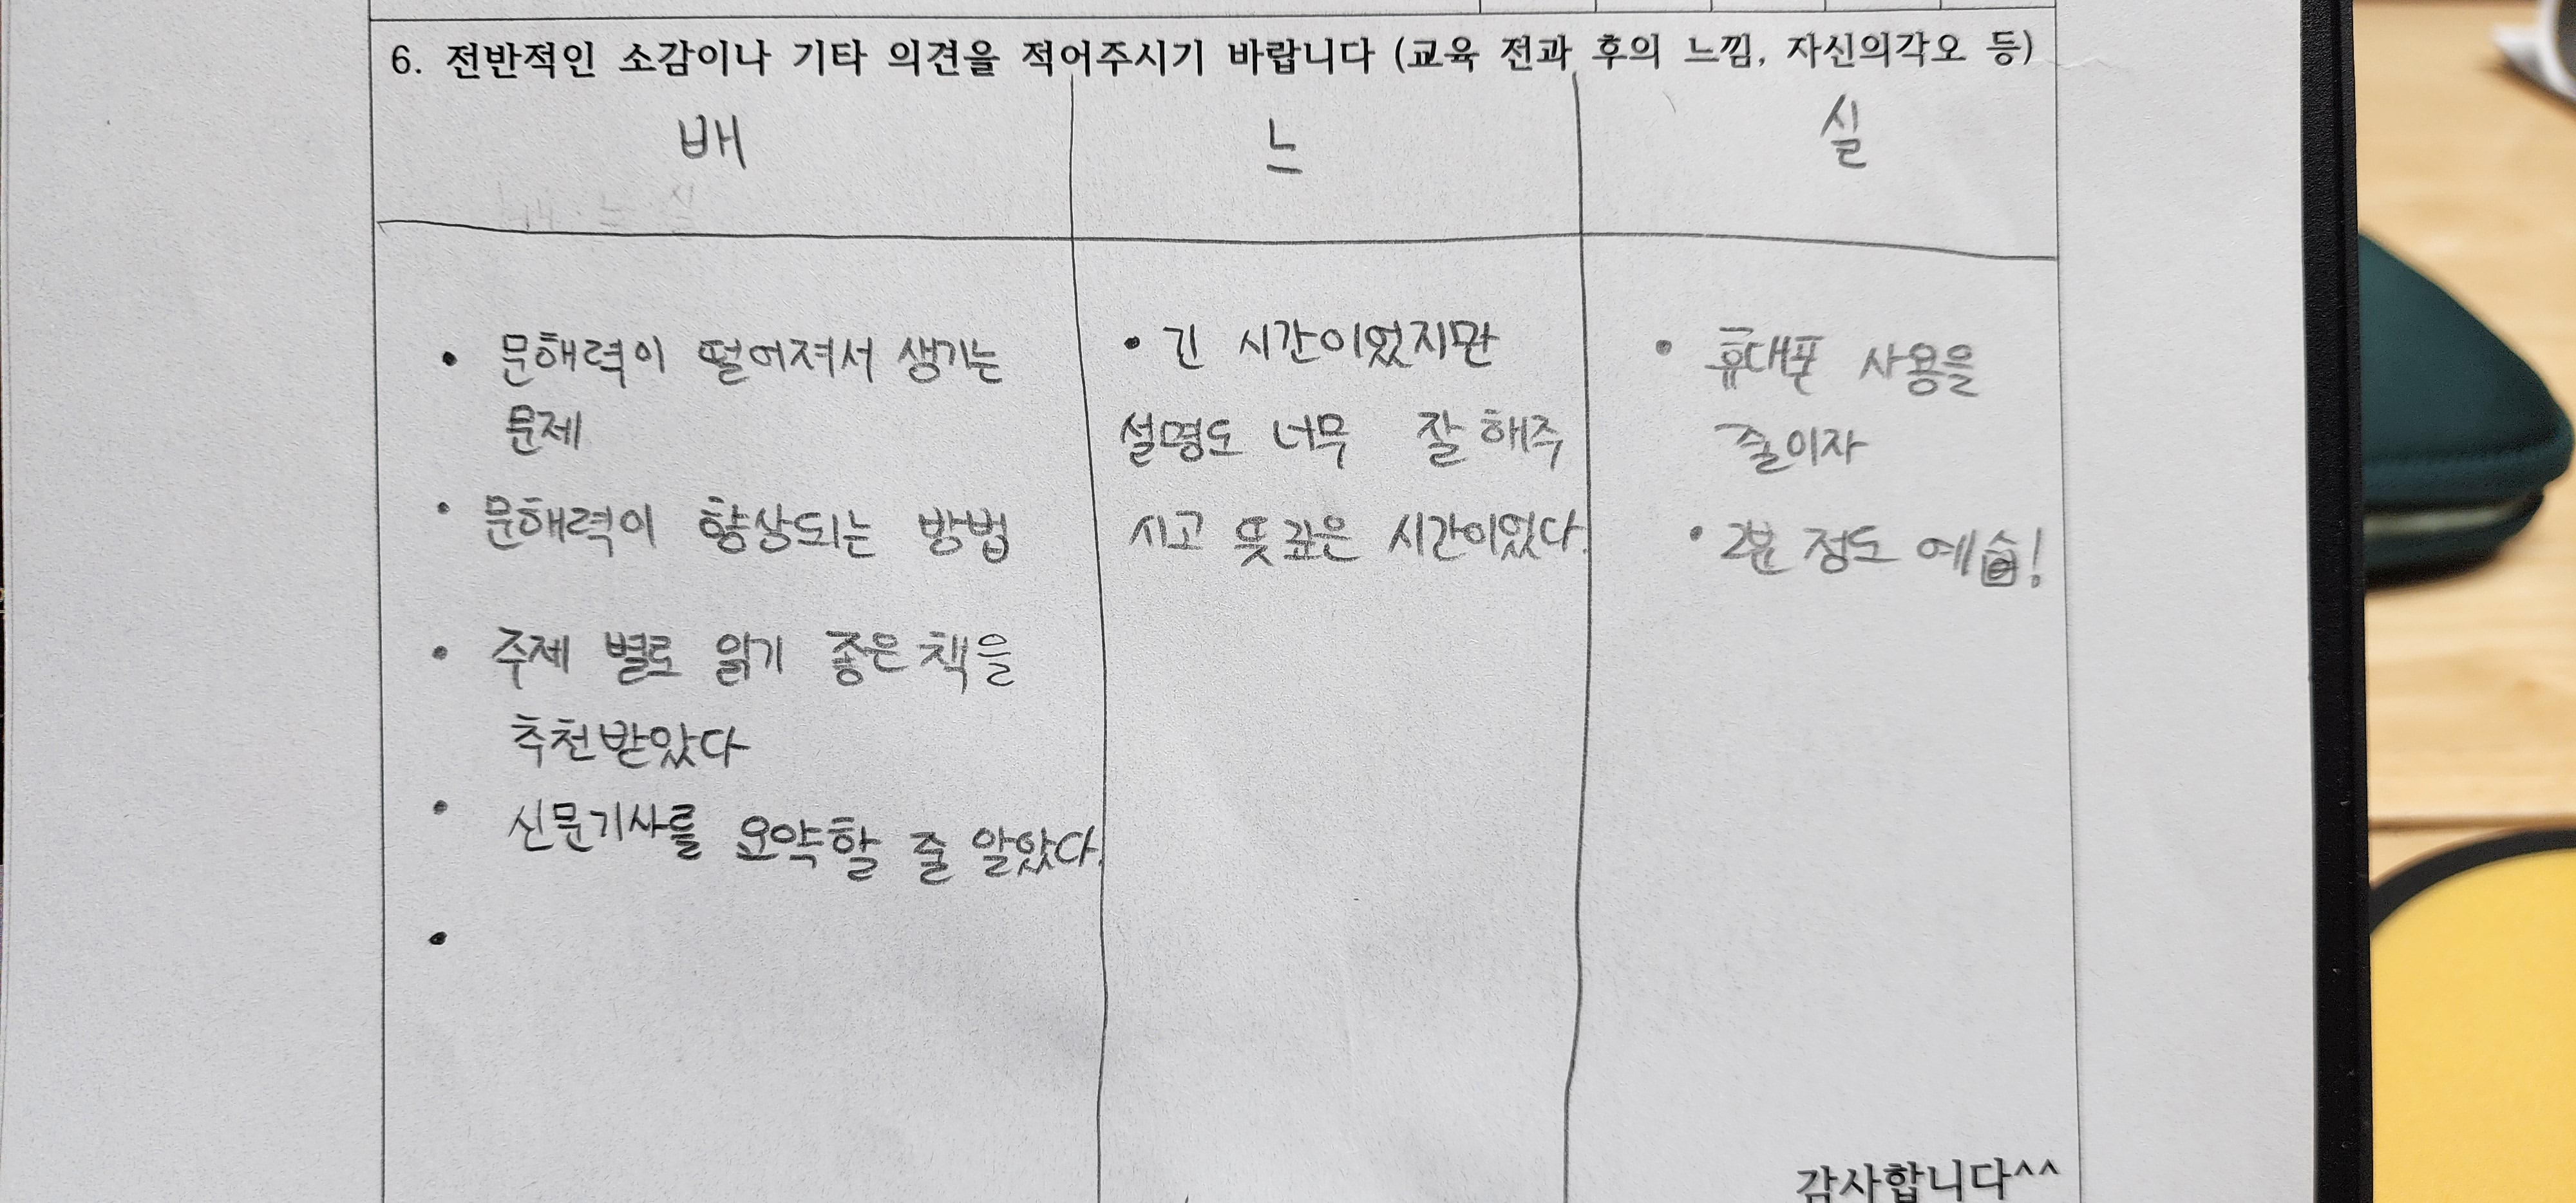 6. 전반적인 소감이나 기타 의견을 적어주시기 바랍니다 (교육 전과 후의 느낌, 자신의각오 등)
배
느
실
배·느·실
• 문해력이 떨어져서 생기는
문제
• 문해력이 향상되는 방법
• 주제 별로 읽기 좋은 책을
추천받았다
• 신문기사를 요약할 줄 알았다.
•
• 긴 시간이었지만
설명도 너무 잘 해주
시고 뜻깊은 시간이었다.
• 휴대폰 사용을
줄이자
• 2분 정도 예습!
감사합니다^^